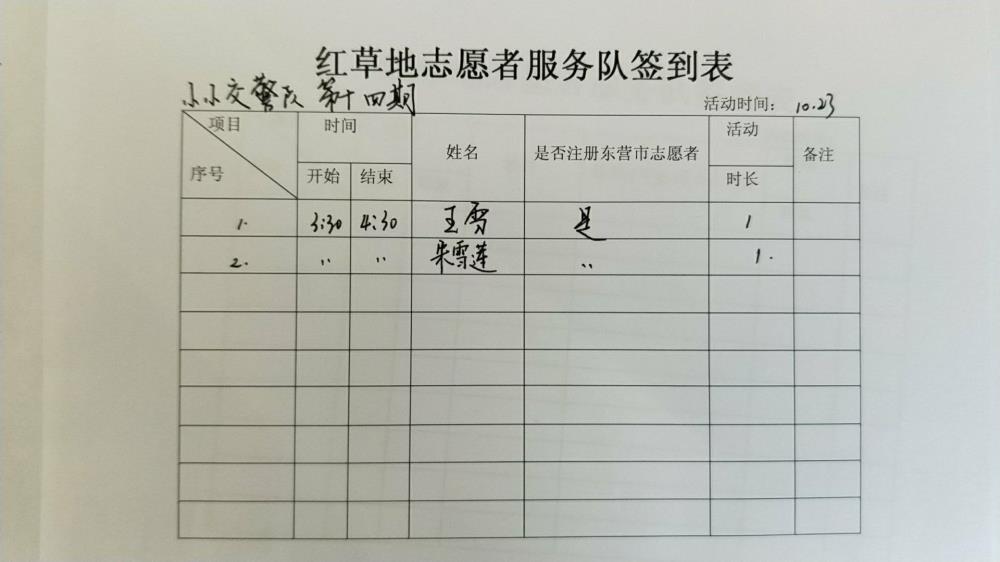 红草地志愿者服务队签到表
小小交警队 第十四期 活动时间: 10.23
项目 时间 姓名 是否注册东营市志愿者 活动 备注
序号 开始 结束 时长
1. 3:30 4:30 王雪 是 1
2. 〃 〃 朱雪莲 〃 1.